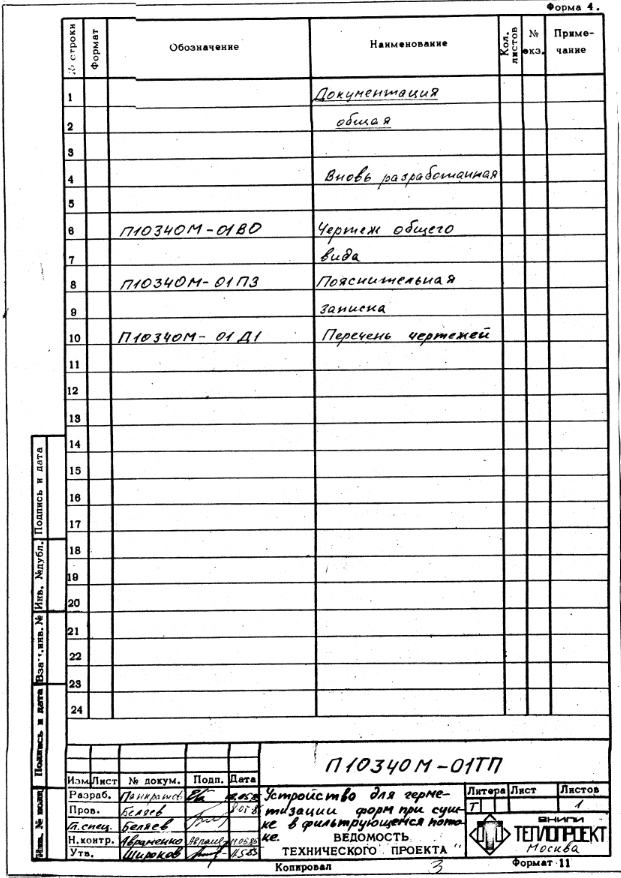 Форма 4.
№ строки
Формат
Обозначение
Наименование
Кол. листов
№ экз.
Приме-
чание
1 Документация
2 общая
3
4 Вновь разработанная
5
6 П10340М-01ВО Чертеж общего
7 вида
8 П10340М-01ПЗ Пояснительная
9 записка
10 П10340М-01Д1 Перечень чертежей
11
12
13
14
15
16
17
18
19
20
21
22
23
24
Подпись и дата
Инв. №дубл.
Взам.инв. №
Подпись и дата
Инв. № подл
П10340М-01ТП
Изм Лист № докум. Подп. Дата
Разраб. Панкратов
Пров. Беляев
Гл.спец. Беляев
Н.контр. Авраменко
Утв. Широков
Устройство для герме-
тизации форм при суш-
ке в фильтрующемся пото-
ке.
ВЕДОМОСТЬ
ТЕХНИЧЕСКОГО ПРОЕКТА
Литера Лист Листов
Т 1
ВНИПИ
ТЕПЛОПРОЕКТ
Москва
Копировал
3
Формат 11